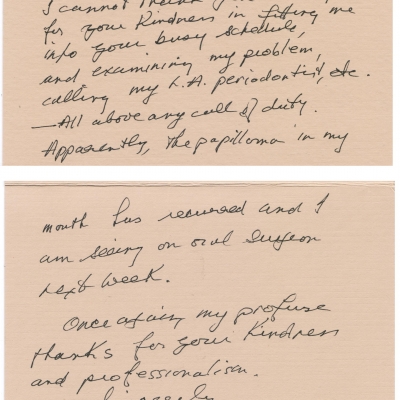 I cannot thank you
for your Kindness in fitting me
into your busy schedule,
and examining my problem,
calling my L.A. periodontist, etc.
—All above any call of duty.
Apparently, The papilloma in my
mouth has recurred and I
am seeing an oral surgeon
next week.
Once again, my profuse
thanks for your Kindness
and professionalism.
Sincerely